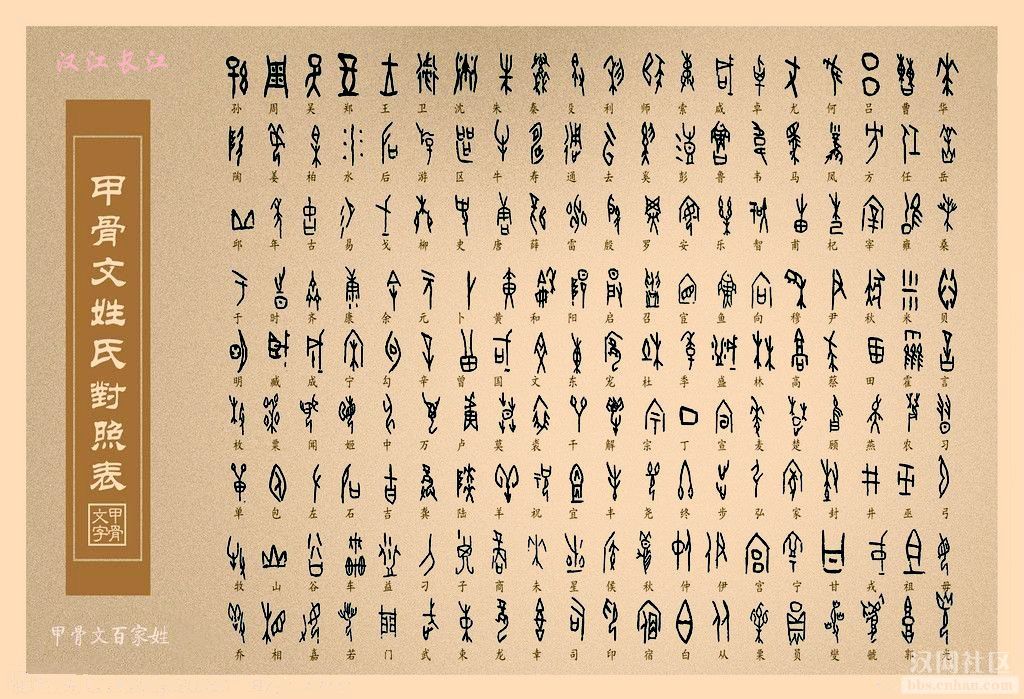 汉江长江
甲骨文姓氏對照表
甲骨文字
甲骨文百家姓
孙 周 吴 郑 王 卫 沈 朱 秦 殳 利 师 索 咸 卓 尤 何 吕 曹 华
陶 姜 柏 水 后 游 区 牛 寿 通 去 奚 彭 鲁 韦 马 凤 方 任 岳
邱 年 古 易 戈 柳 史 唐 薛 雷 殷 罗 安 乐 智 甫 杞 宰 雍 桑
于 时 齐 康 余 元 卜 黄 和 阳 启 召 宦 鱼 向 穆 尹 秋 米 贝
明 臧 成 宁 勾 辛 曾 国 文 东 宠 杜 季 盛 林 高 蔡 田 霍 言
枚 粟 闻 姬 中 万 卢 莫 裘 干 解 宗 丁 宣 麦 楚 顾 燕 农 习
单 包 左 石 吉 龚 陆 羊 祝 宜 丰 尧 终 步 弘 家 封 井 巫 弓
牧 山 谷 车 益 刁 子 商 未 星 侯 秋 仲 伊 宫 宁 甘 戎 祖 母
乔 相 嘉 若 门 武 束 龙 幸 司 印 宿 白 从 栗 员 燮 虢 郭
汉网社区
bbs.cnhan.com